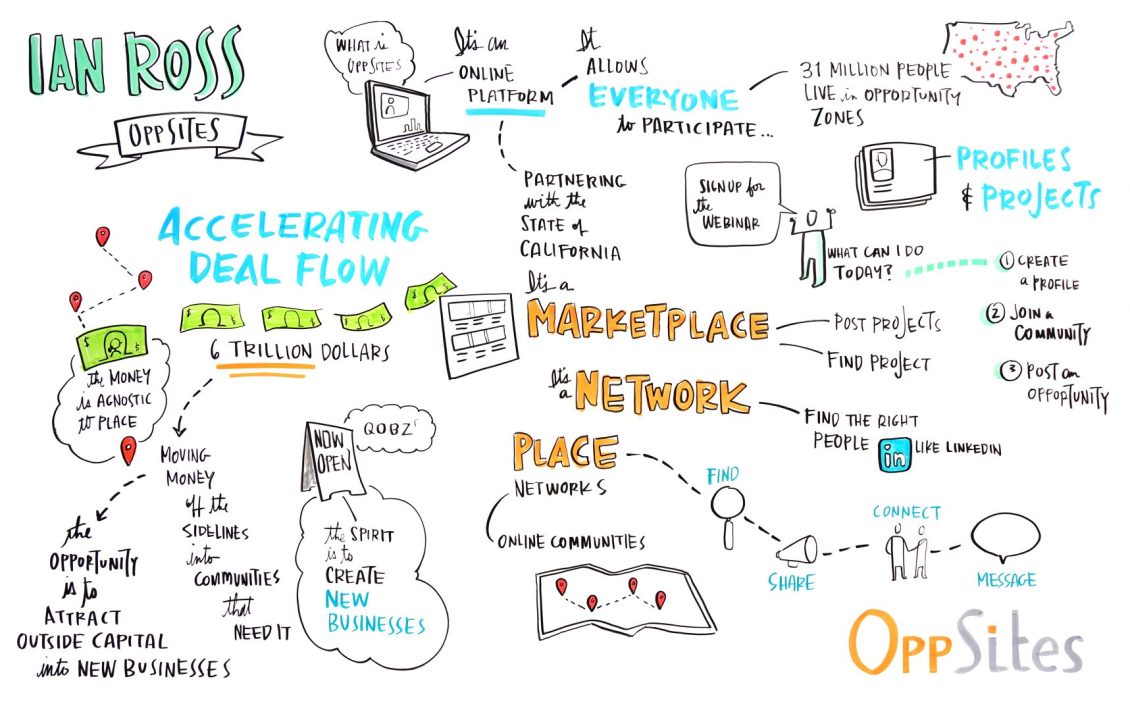 IAN ROSS
OPPSITES
WHAT is
OPPSITES
It's an
ONLINE
PLATFORM
It
ALLOWS
EVERYONE
to PARTICIPATE...
31 MILLION PEOPLE
LIVE in OPPORTUNITY
ZONES
PARTNERING
with the
STATE of
CALIFORNIA
SIGN UP for
the
WEBINAR
PROFILES
& PROJECTS
WHAT CAN I DO
TODAY?
1 CREATE
a PROFILE
2 JOIN a
COMMUNITY
3 POST an
OPPORTUNITY
ACCELERATING
DEAL FLOW
$ $
$ $
$ $
$ $
$ $
6 TRILLION DOLLARS
the MONEY
is AGNOSTIC
to PLACE
MOVING
MONEY
off the
SIDELINES
into
COMMUNITIES
that
NEED IT
the
OPPORTUNITY
is to
ATTRACT
OUTSIDE CAPITAL
into NEW BUSINESSES
NOW
OPEN
QOBZ'
the SPIRIT
is to
CREATE
NEW
BUSINESSES
It's a
MARKETPLACE
POST PROJECTS
FIND PROJECT
It's
a NETWORK
FIND THE RIGHT
PEOPLE in LIKE LINKEDIN
PLACE
NETWORKS
ONLINE COMMUNITIES
FIND
SHARE
CONNECT
MESSAGE
OppSites